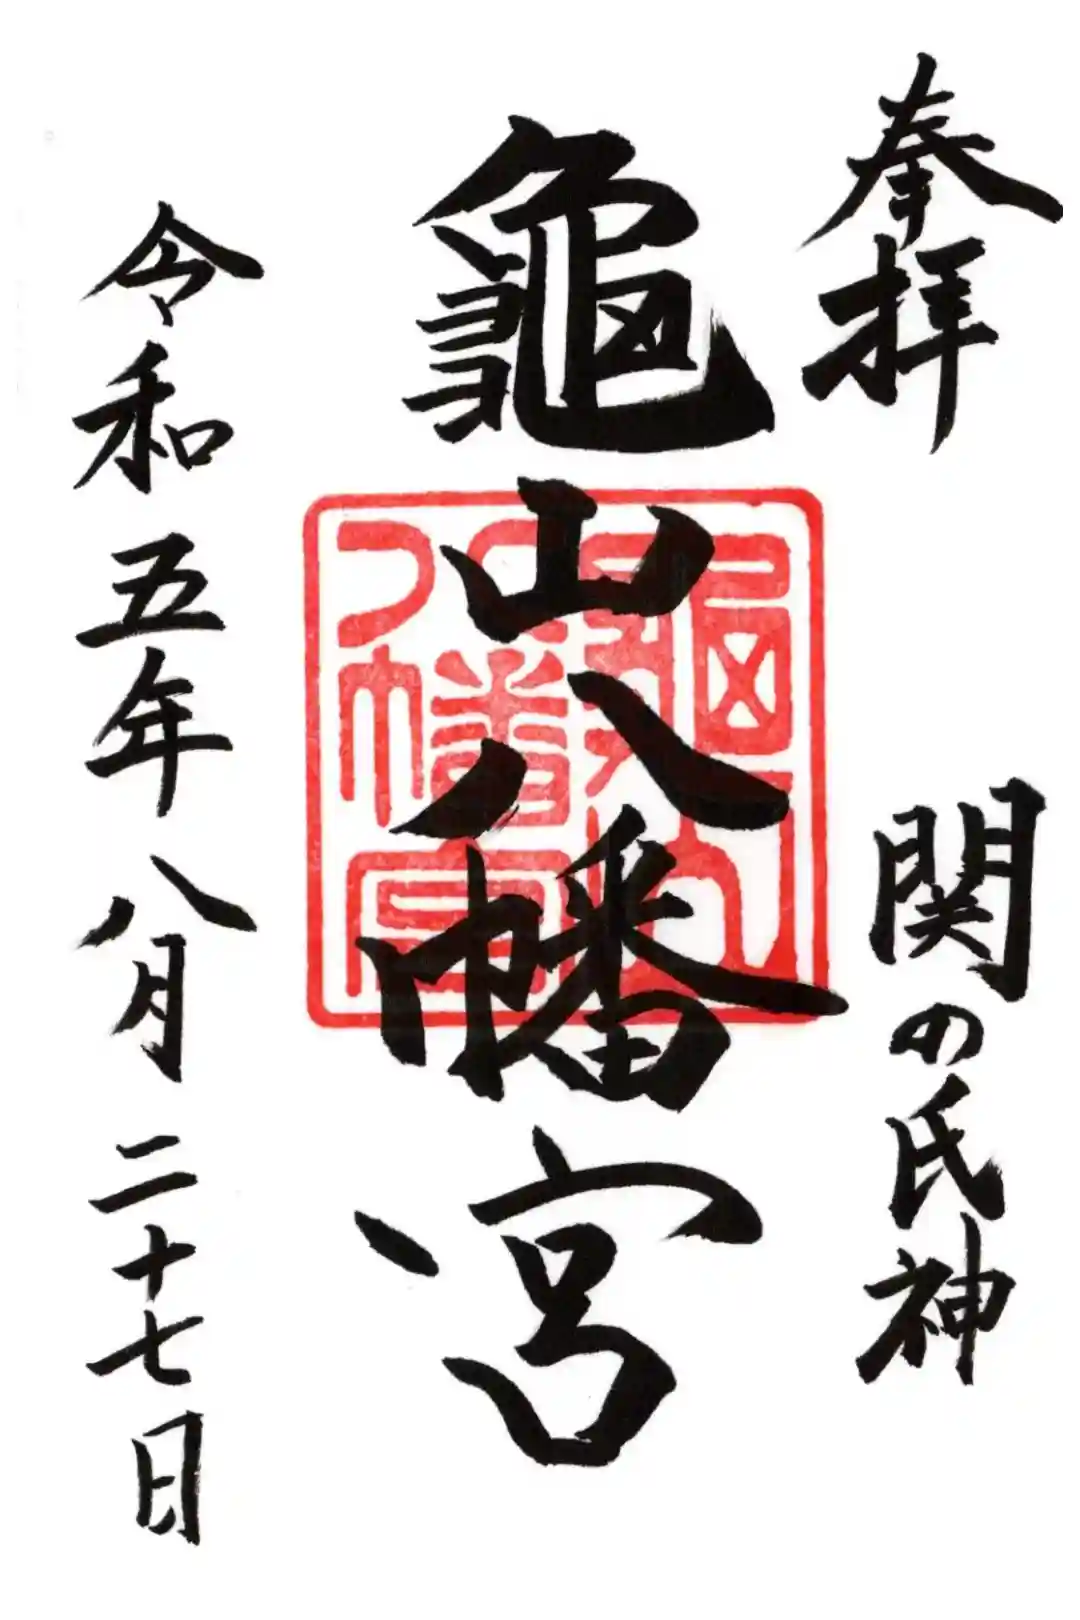 奉拝
関の氏神
龜山八幡宮
龜山八幡宮
令和五年八月二十七日